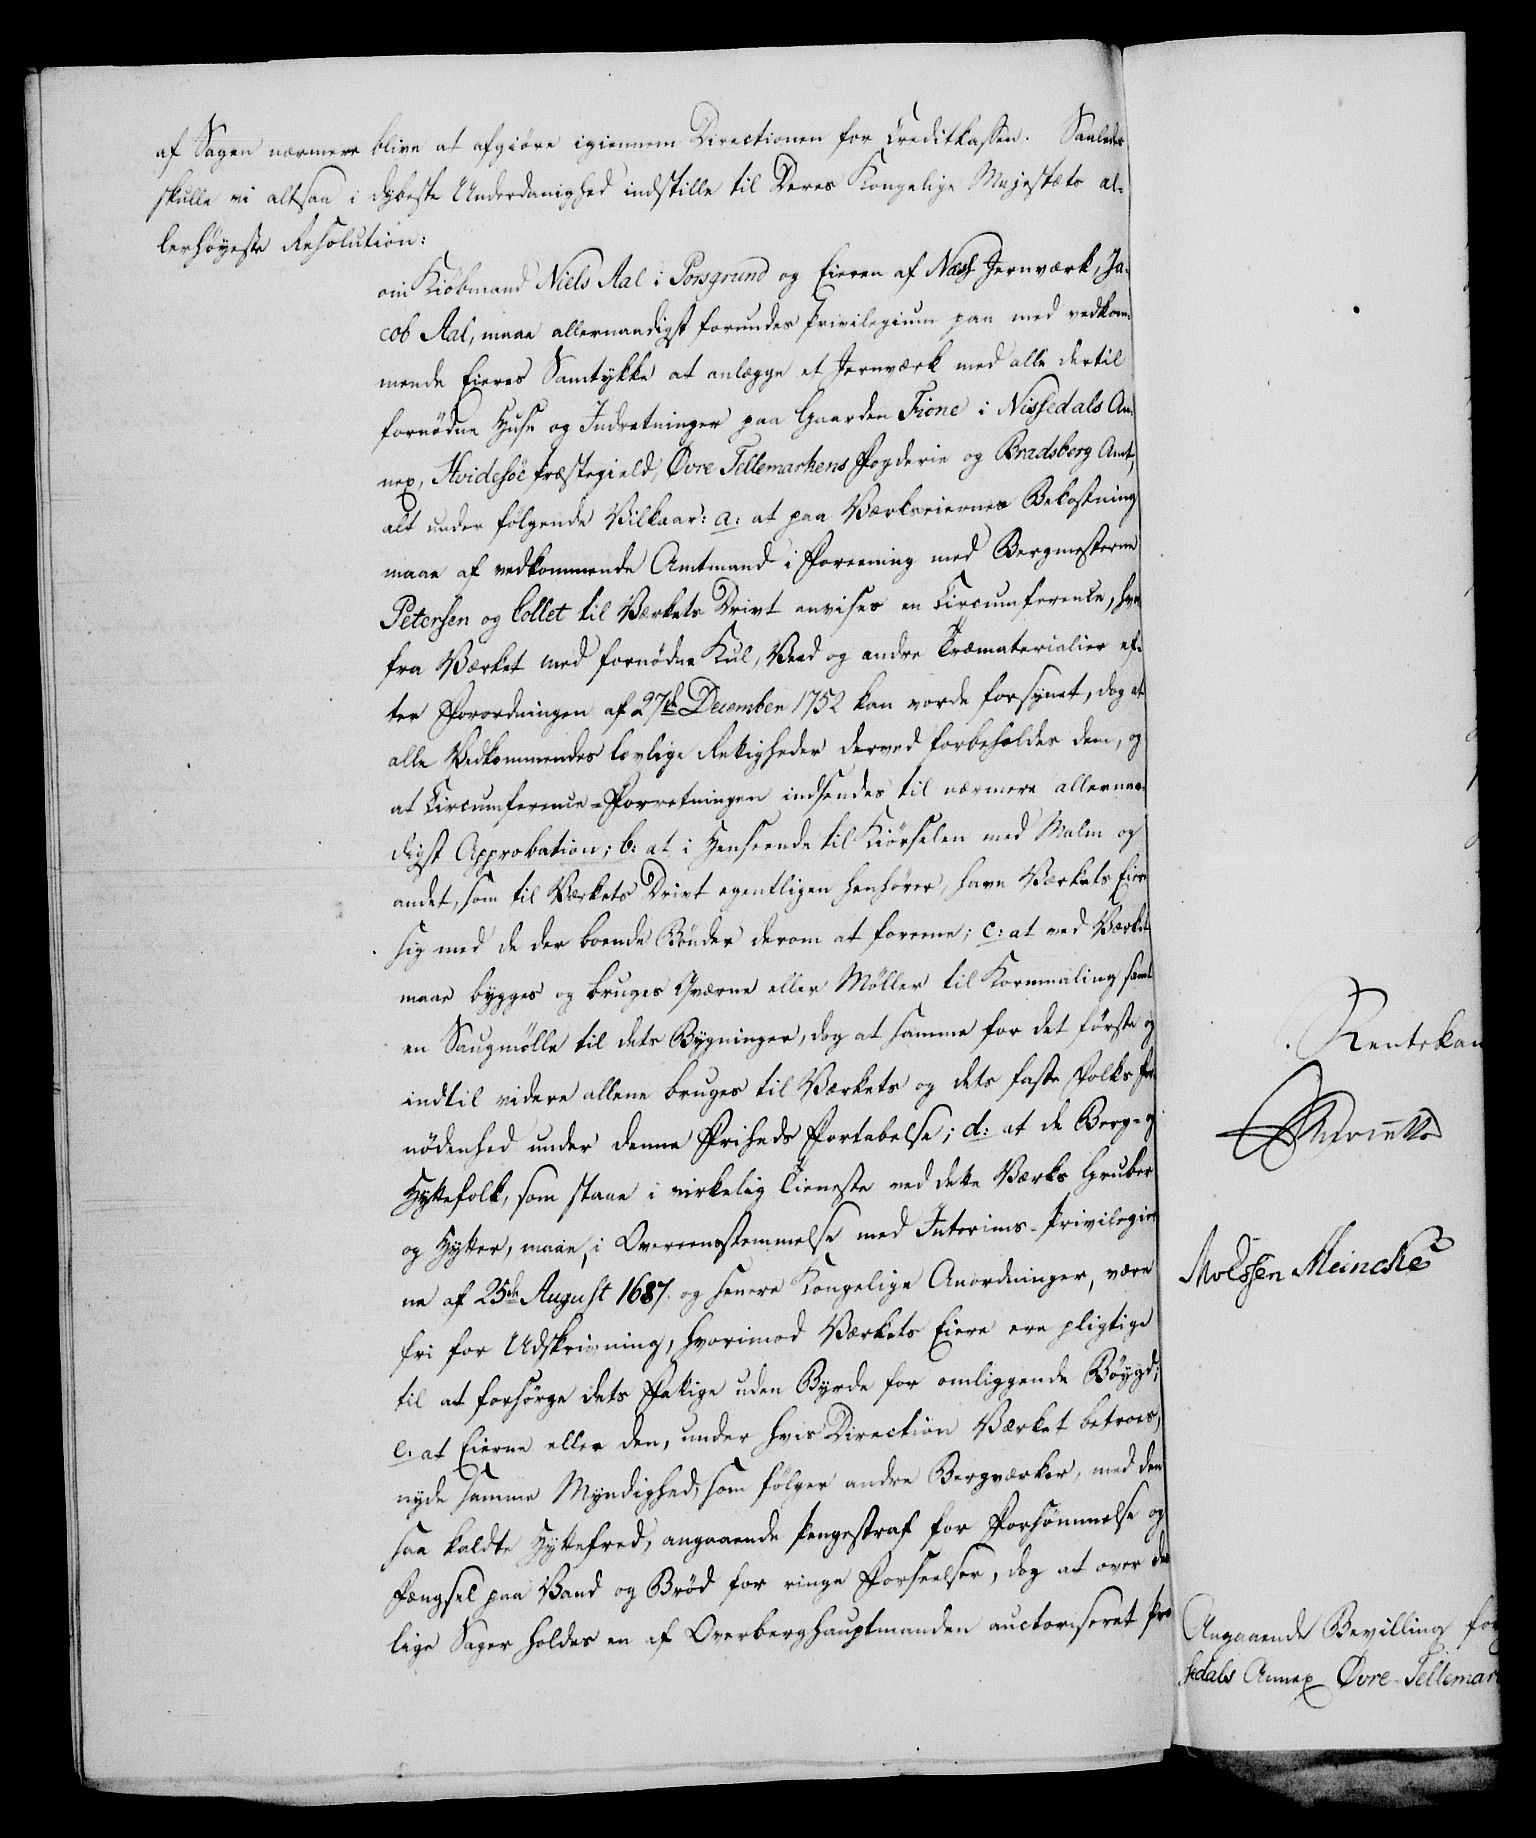 af Sagen nærmere blive at afgiöre igiennem Directionen for Creditkassen. Saaledes
skulle vi altsaa i dybeste Underdanighed indstille til Deres Kongelige Majestæts al-
lerhöyeste Resolution:
om Kiöbmand Niels Aal i Porsgrund og Eieren af Næss Jernværk, Ja-
cob Aal, maae allernaadigst forundes Privilegium paa med vedkom-
mende Eieres Samtykke at anlægge et Jernværk med alle dertil
fornödne Huse og Indretninger paa Gaarden Fione i Nissedals An-
nex, Hvidesöe Præstegield, Øvre Tellemarkens Fogderie og Bradsberg Amt,
alt under fölgende Vilkaar: a: at paa Værkseiernes Bekostning
maae af vedkommende Amtmand i Foreening med Bergmesterne
Petersen og Collet til Værkets Drivt anvises en Circumference, hvor-
fra Værket med fornödne Kul, Veed og andre Træmaterialier ef-
ter Forordningen af 27de December 1752 kan vorde forsynet, dog at
alle Vedkommendes lovlige Rettigheder derved forbeholdes dem, og
at Circumference-Forretningen indsendes til nærmere allernaa-
digst Approbation; b: at i Henseende til Kiörselen med Malm og
andet, som til Værkets Drivt egentligen henhörer, have Værkets Eiere
sig med de der boende Bönder derom at foreene; c: at ved Værket
maae bygges og bruges Qværne eller Möller til Kornmaling samt
en Saugmölle til dets Bygninger, dog at samme for det förste og
indtil videre allene bruges til Værkets og dets faste Folks For-
nödenhed under denne Friheds Fortabelse; d: at de Berg- og
Hyttefolk, som staae i virkelig Tieneste ved dette Værks Gruber
og Hytter, maae, i Overeensstemmelse med Interims-Privilegier-
ne af 25de August 1687 og senere Kongelige Anordninger, være
fri for Udskrivning, hvorimod Værkets Eiere ere pligtige
til at forsörge dets Fattige uden Byrde for omliggende Böygd;
e: at Eierne eller den, under hvis Direction Værket betroes,
nyde samme Myndighed, som fölger andre Bergværker, med den
saa kaldte Hyttefred, angaaende Pengestraf for Forsömmelse og
Fængsel paa Vand og Bröd for ringe Forseelser, dog at over des-
lige Sager holdes en af Overberghauptmanden auctoriseret Pro-
Rentekam
Moessen Meincke
Angaaende Bevilling for
sedals Annex Øvre-Tellemar